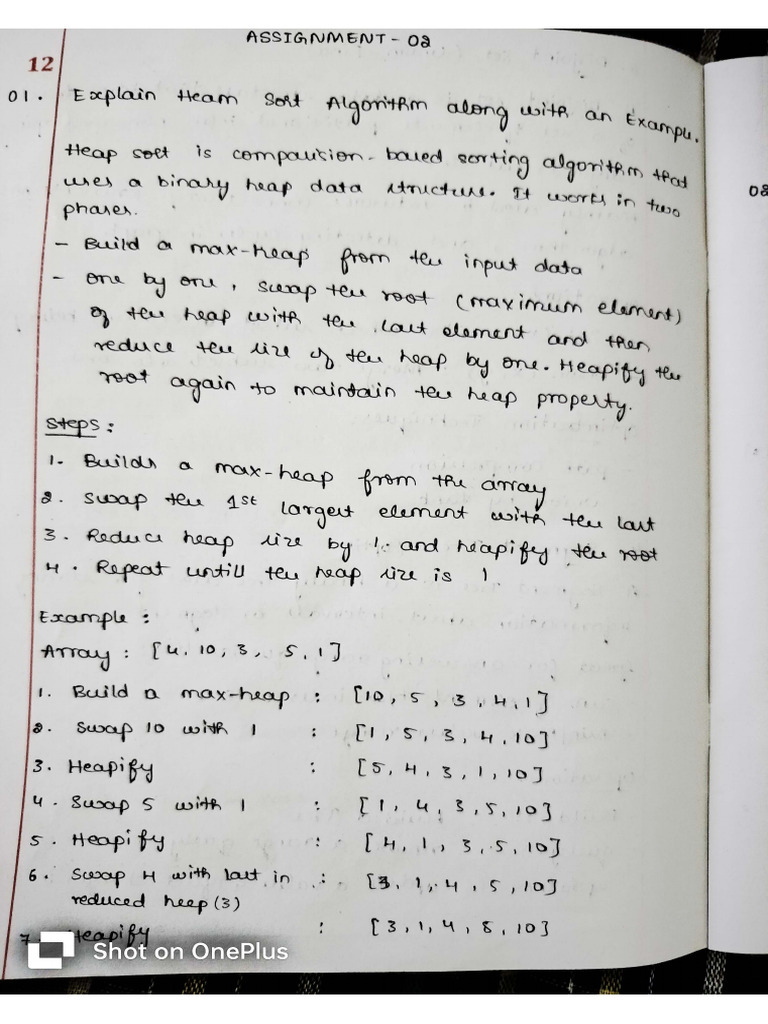 ASSIGNMENT - 02
12
01. Explain Heam Sort Algorithm along with an Example.
Heap sort is comparision-based sorting algorithm that
uses a binary heap data structure. It works in two
phases.
- Build a max-heap from the input data
- One by one, swap the root (maximum element)
of the heap with the last element and then
reduce the size of the heap by one. Heapify the
root again to maintain the heap property.
Steps:
1. Builds a max-heap from the array
2. Swap the 1st largest element with the last
3. Reduce heap size by 1. and heapify the root
4. Repeat untill the heap size is 1.
Example:
Array: [4, 10, 3, 5, 1]
1. Build a max-heap : [10, 5, 3, 4, 1]
2. Swap 10 with 1 : [1, 5, 3, 4, 10]
3. Heapify : [5, 4, 3, 1, 10]
4. Swap 5 with 1 : [1, 4, 3, 5, 10]
5. Heapify : [4, 1, 3, 5, 10]
6. Swap 4 with last in : [3, 1, 4, 5, 10]
reduced heep (3)
7. Heapify : [3, 1, 4, 5, 10]
Shot on OnePlus
02